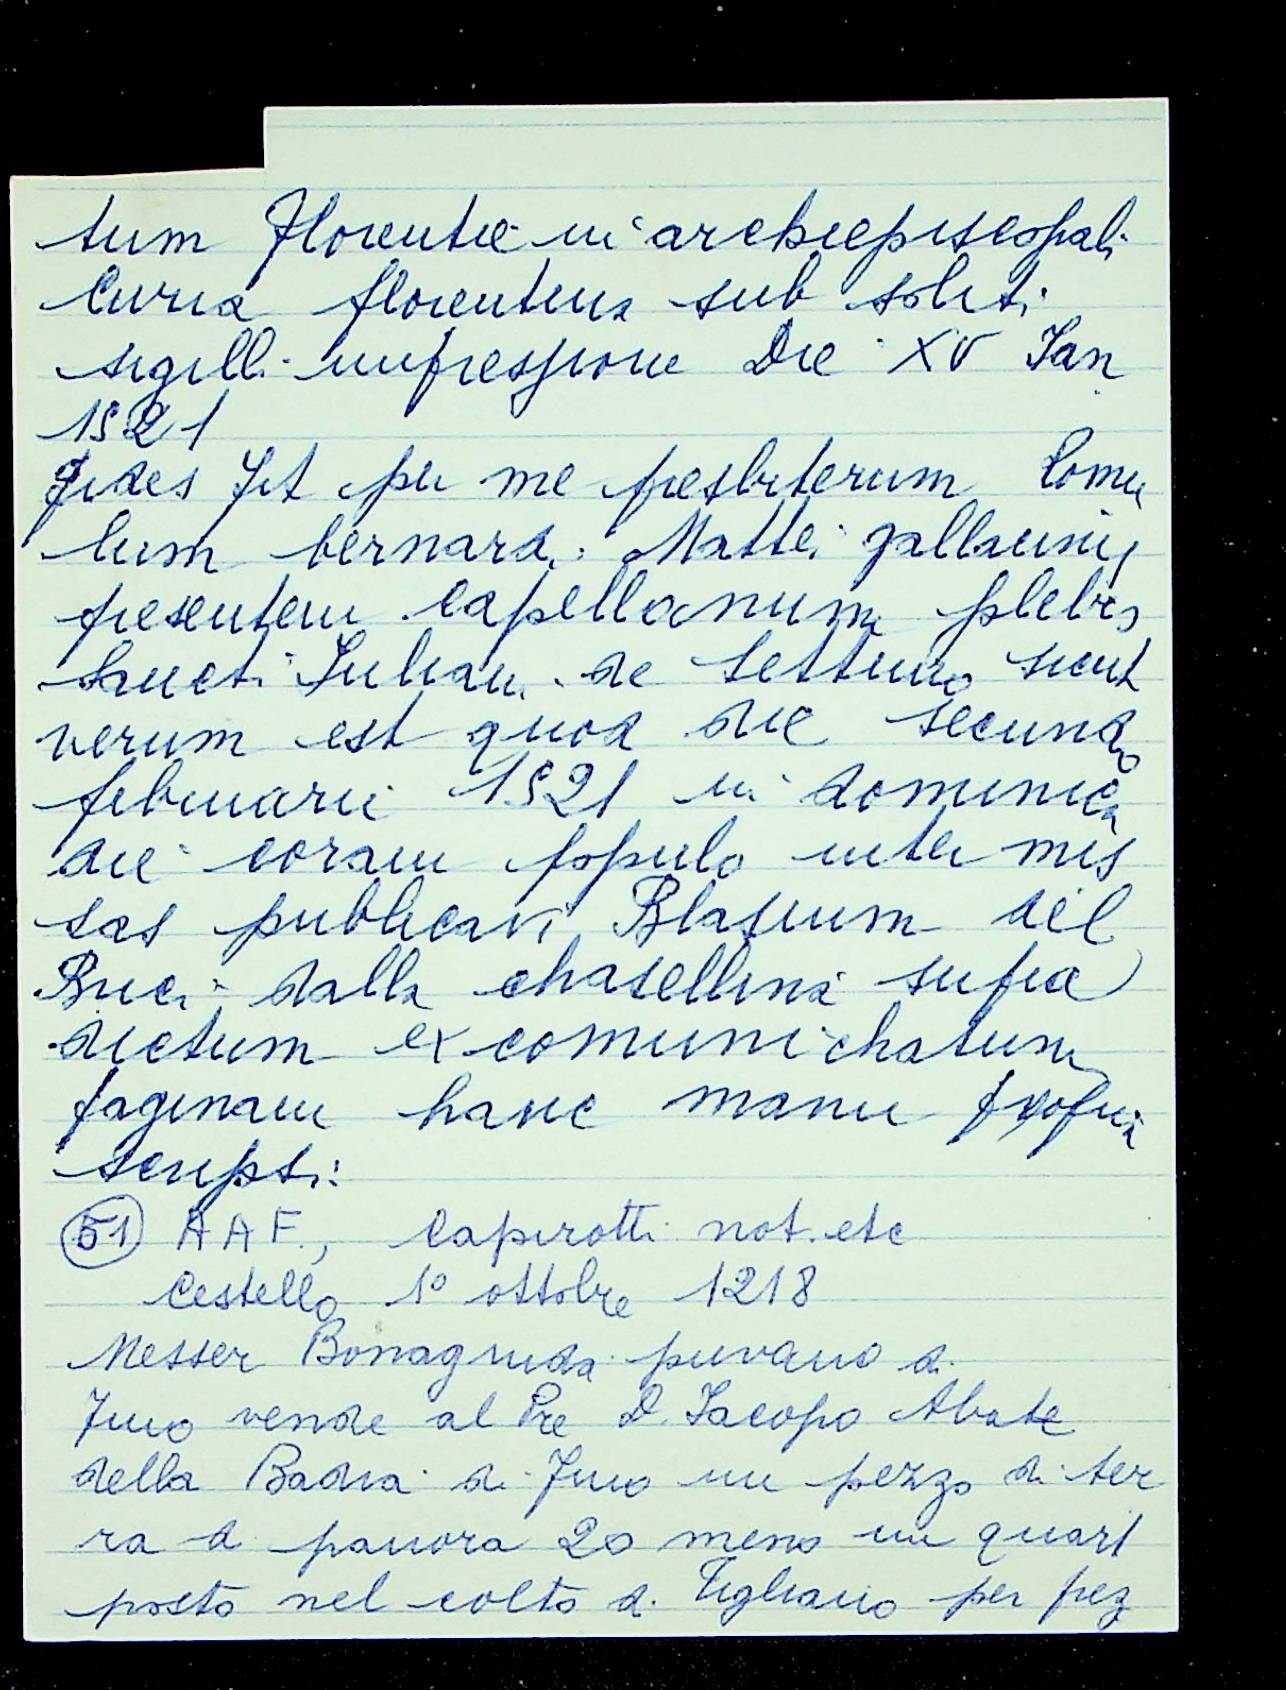 tum Florentie in archiepiscopali
Curia florentina sub soliti
sigilli impressione Die XV Ian
1521
fides fit per me presbiterum Romu
lum bernardi Mattei gallacini
presentem capellanum plebis
Sancti Iuliani de Settimo sicut
verum est quod die secundo
februarii 1521 in dominica
die coram populo inter mis
sas publicavi Blasium del
Buci dalla chasellina supra
dictum excomunichatum
paginam hanc manu propria
scripsi:
51 AAF., Capirotti not. etc
Cestello 1º ottobre 1218
Messer Bonaguida pievano di
vende al Pre D. Iacopo Abate
della Badia di un pezzo di ter
ra di panora 20 meno un quart
posto nel colto di Tigliano per prez